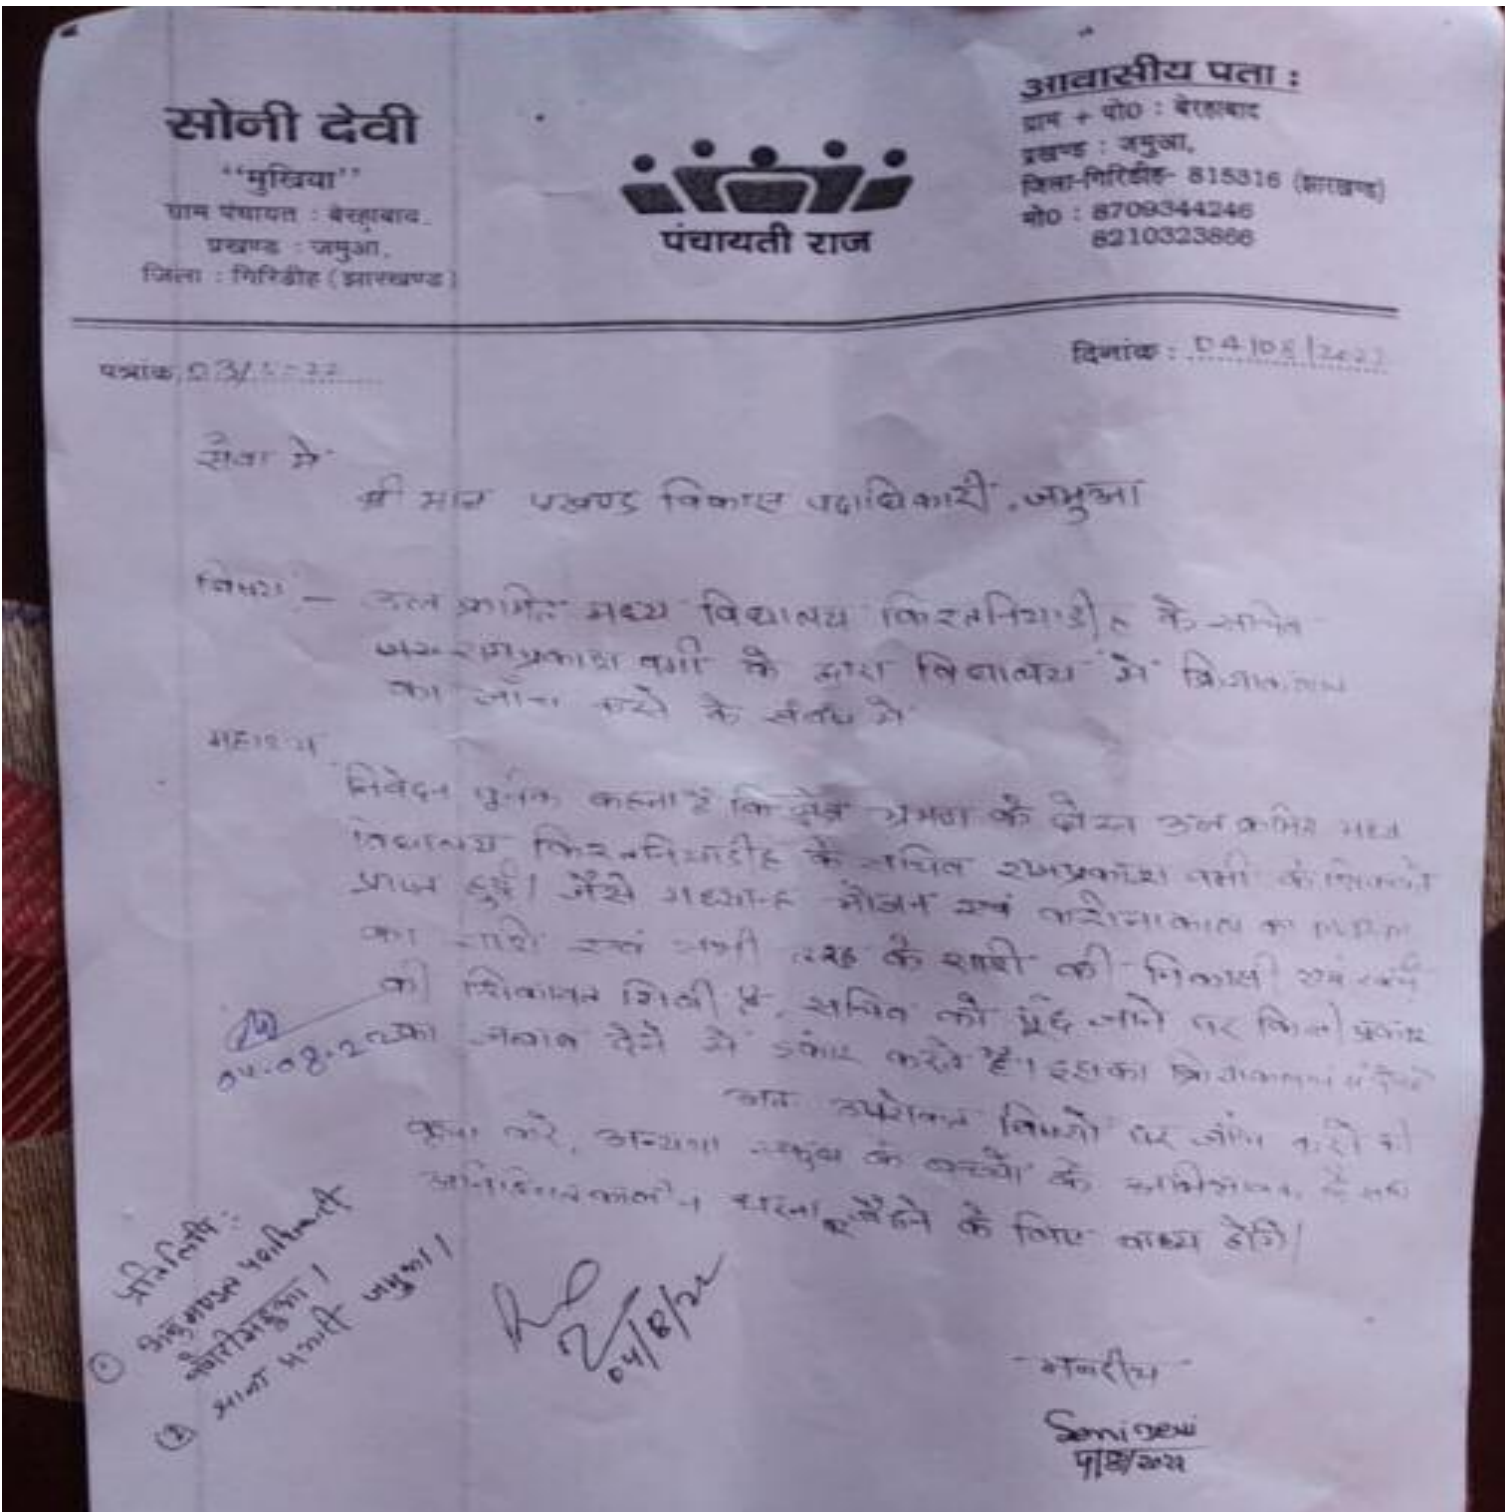 सोनी देवी
"मुखिया"
ग्राम पंचायत : बेरहाबाद.
प्रखण्ड : जमुआ,
जिला : गिरिडीह (झारखण्ड)
पंचायती राज
आवासीय पता :
ग्राम + पो0 : बेरहाबाद
प्रखण्ड : जमुआ,
जिला-गिरिडीह- 815316 (झारखण्ड)
मो0 : 8709344246
8210323866
पत्रांक 03/
दिनांक : 04/08/2022
सेवा में
श्री मान प्रखण्ड विकास पदाधिकारी, जमुआ
विषय :- उत्क्रमित मध्य विद्यालय किरतनियाडीह के सचिव
रामप्रकाश वर्मा के द्वारा विद्यालय में
का जाँच करने के संबंध में
महाशय
निवेदन पूर्वक कहना है कि क्षेत्र भ्रमण के दौरान उत्क्रमित मध्य
विद्यालय किरतनियाडीह के सचिव रामप्रकाश वर्मा के
प्राप्त हुई। जैसे मध्यान्ह भोजन एवं करोनाकाल का
का राशि एवं सभी तरह के राशी की निकासी एवं
की शिकायत मिली है, सचिव को पूछे जाने पर किसी प्रकार
का जवाब देने से इंकार करते है। इसका
अतः उपरोक्त विषयों पर जाँच करने की
कृपा करे, अन्यथा स्कूल के बच्चों के अभिभावक के साथ
अनिश्चितकालीन धरना पर बैठने के लिए बाध्य होंगे।
04-08-22
प्रतिलिपि :
① अनुमण्डल पदाधिकारी
खोरीमहुआ।
② थाना प्रभारी जमुआ।
04/8/22
भवदीय
Soni Devi
4/8/2022